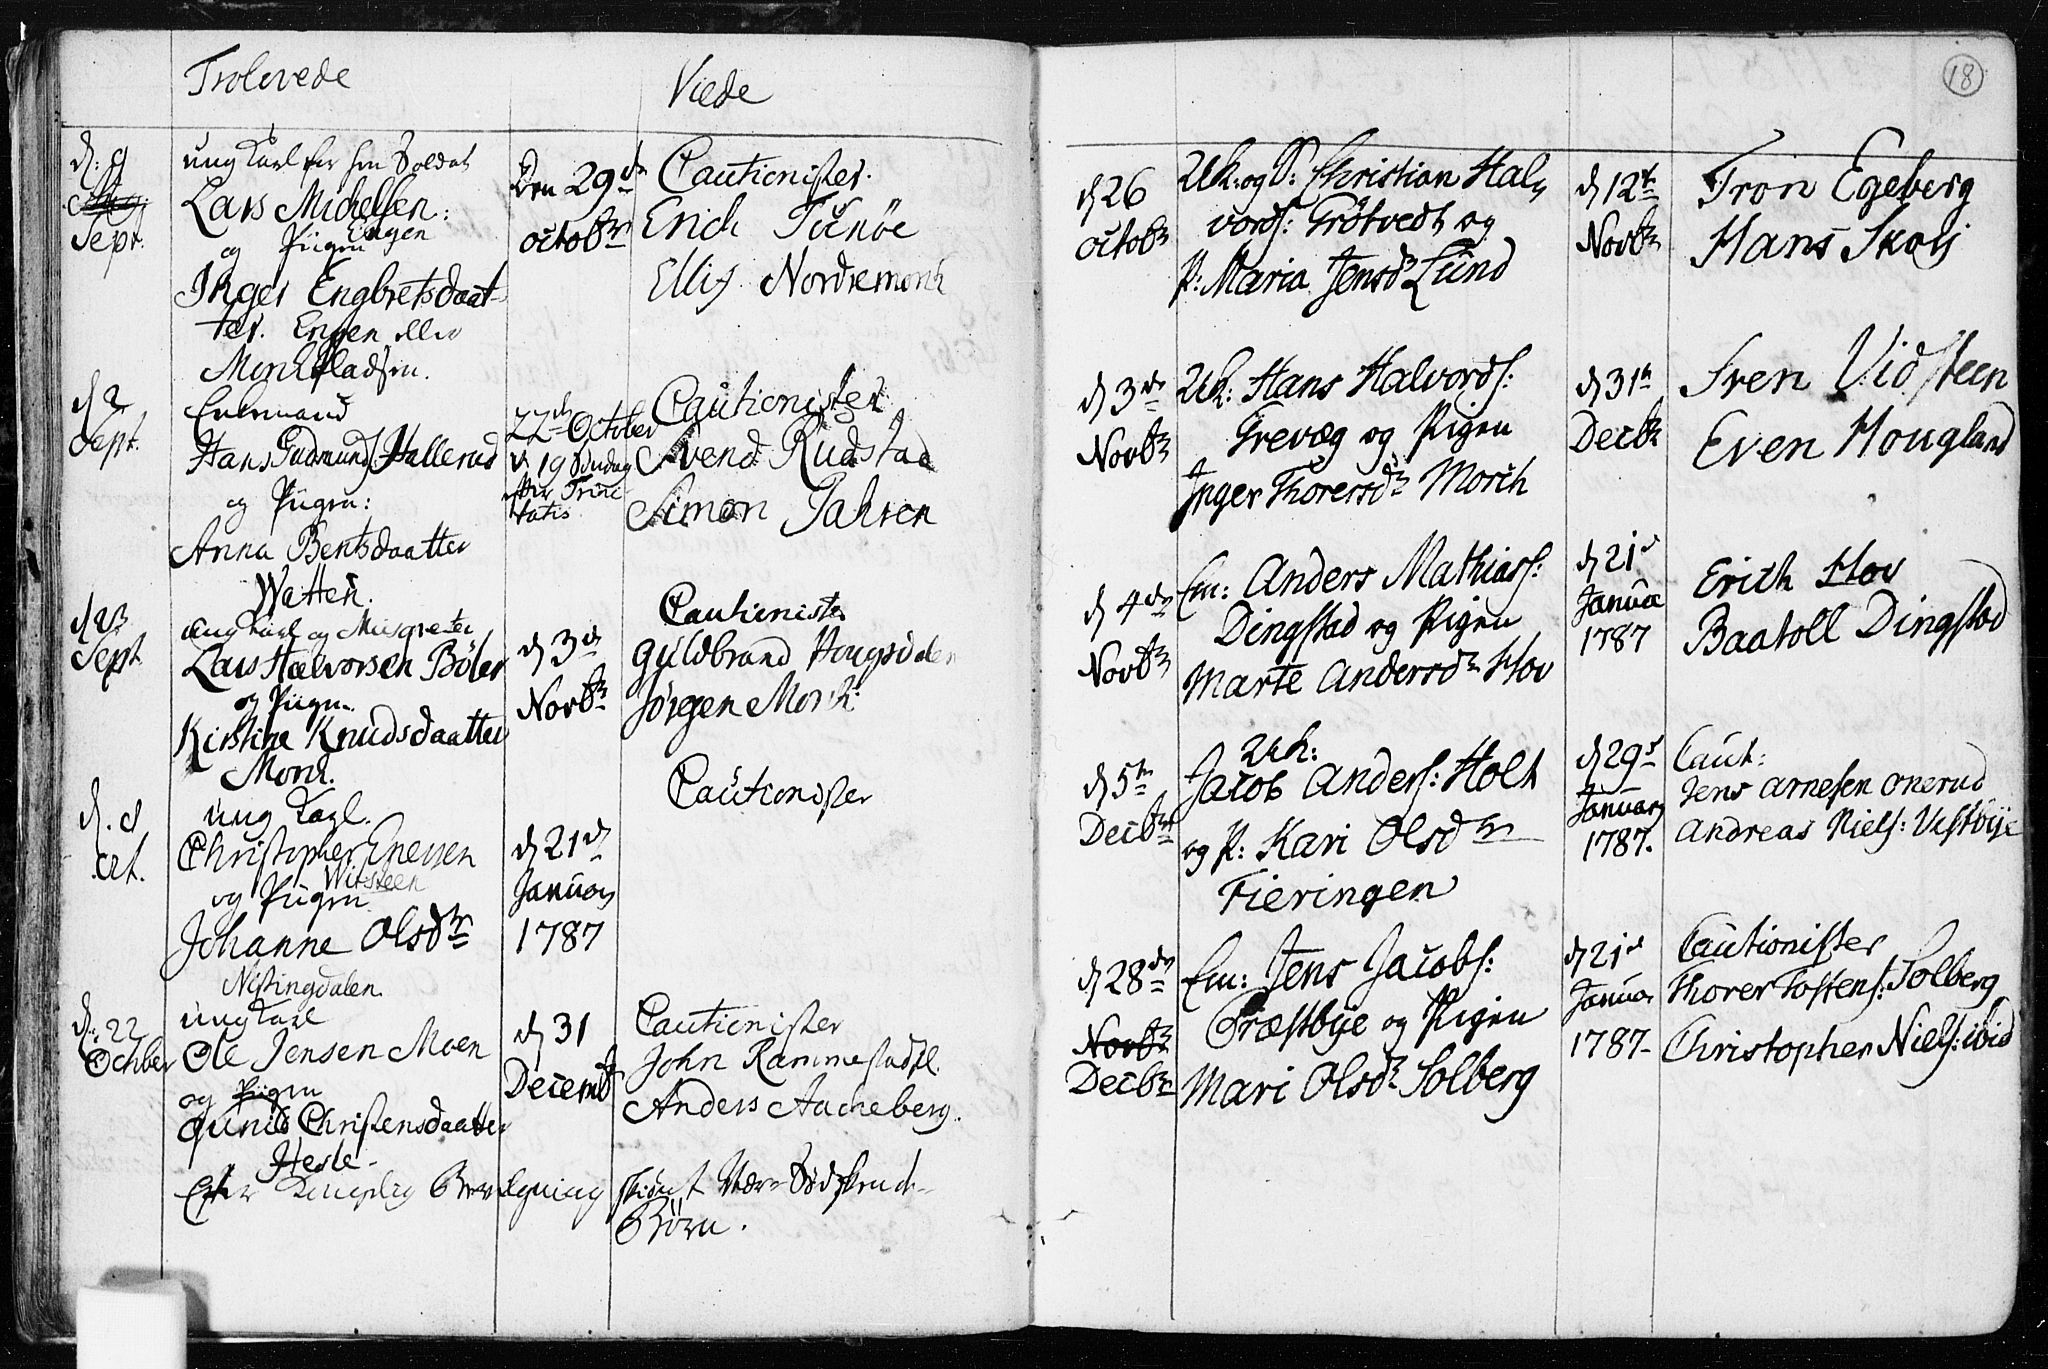 Trolovede
Viede
d: 9
Sept.
ung Karl før hen Soldat
Lars Michelsen:
Engen
og Pigen
Inger Engbretsdaat-
ter. Engen eller
Monkpladsen.
Den 29de
octobr
Cautionister.
Erich Tunøe
Ellis Nordremonk
d 2
Sept.
Enkemand
Hans Gudmunds: Hallerud
og Pigen:
Anna Bentsdaatter
Watten.
22de October
d. 19 Søndag
efter Trini
tatis
Cautionister
Svend Rudstad
Simon Jahren
d 23
Sept
ung Karl og Musqueter
Lars Halvorsen Böler
og Pigen
Kirstine Knudsdaatter
Monk.
d 3de
Novbr
Cautionister
Guldbrand Hougsdalen
Jørgen Monk.
d. 8
oct.
ung Karl.
Christopher Enersen
Witsteen
og Pigen
Johanne Olsdtr
Nistingdalen
d 21de
Januar
1787
Cautionister
d: 22
October
ung Karl
Ole Jensen Moen
og Pigen
Gunild Christensdaatter
Hesle-
d 31
Decembr
Cautionister
John Rammestad
Anders Aacheberg.
Efter Kongelig Bevilgning skiönt være Södskende
Börn.
18
d 26
octobr
UK. og S: Christian Hal-
vords: Grötvedt og
P: Maria Jensdr Lund
d 12te
Novbr
Tron Egeberg
Hans Skou
d 3de
Novbr
UK: Hans Halvords:
Grevæg og Pigen
Inger Thoresdr Morch
d 31te
Decbr
Sven Vidsteen
Even Hougland
d 4de
Novbr
Em: Anders Mathiass:
Dingstad og Pigen
Marte Andersdr Hov
d 21d
Janua
1787
Erich Hov
Baatoll Dingstad
d 5te
Decbr
UK:
Jacob Anders: Holt
og P: Kari Olsdr
Fieringen
d 29d
Januar
1787.
Caut:
Jens Arnesen Onerud
Andreas Niels: Vestbye
d 28de
Novbr
Decbr
Em: Jens Jacobs:
Præstbye og Pigen
Mari Olsdr Solberg
d 21d
Januar
1787-
Cautionister
Thorer Tostens: Solberg
Christopher Niels: ibid